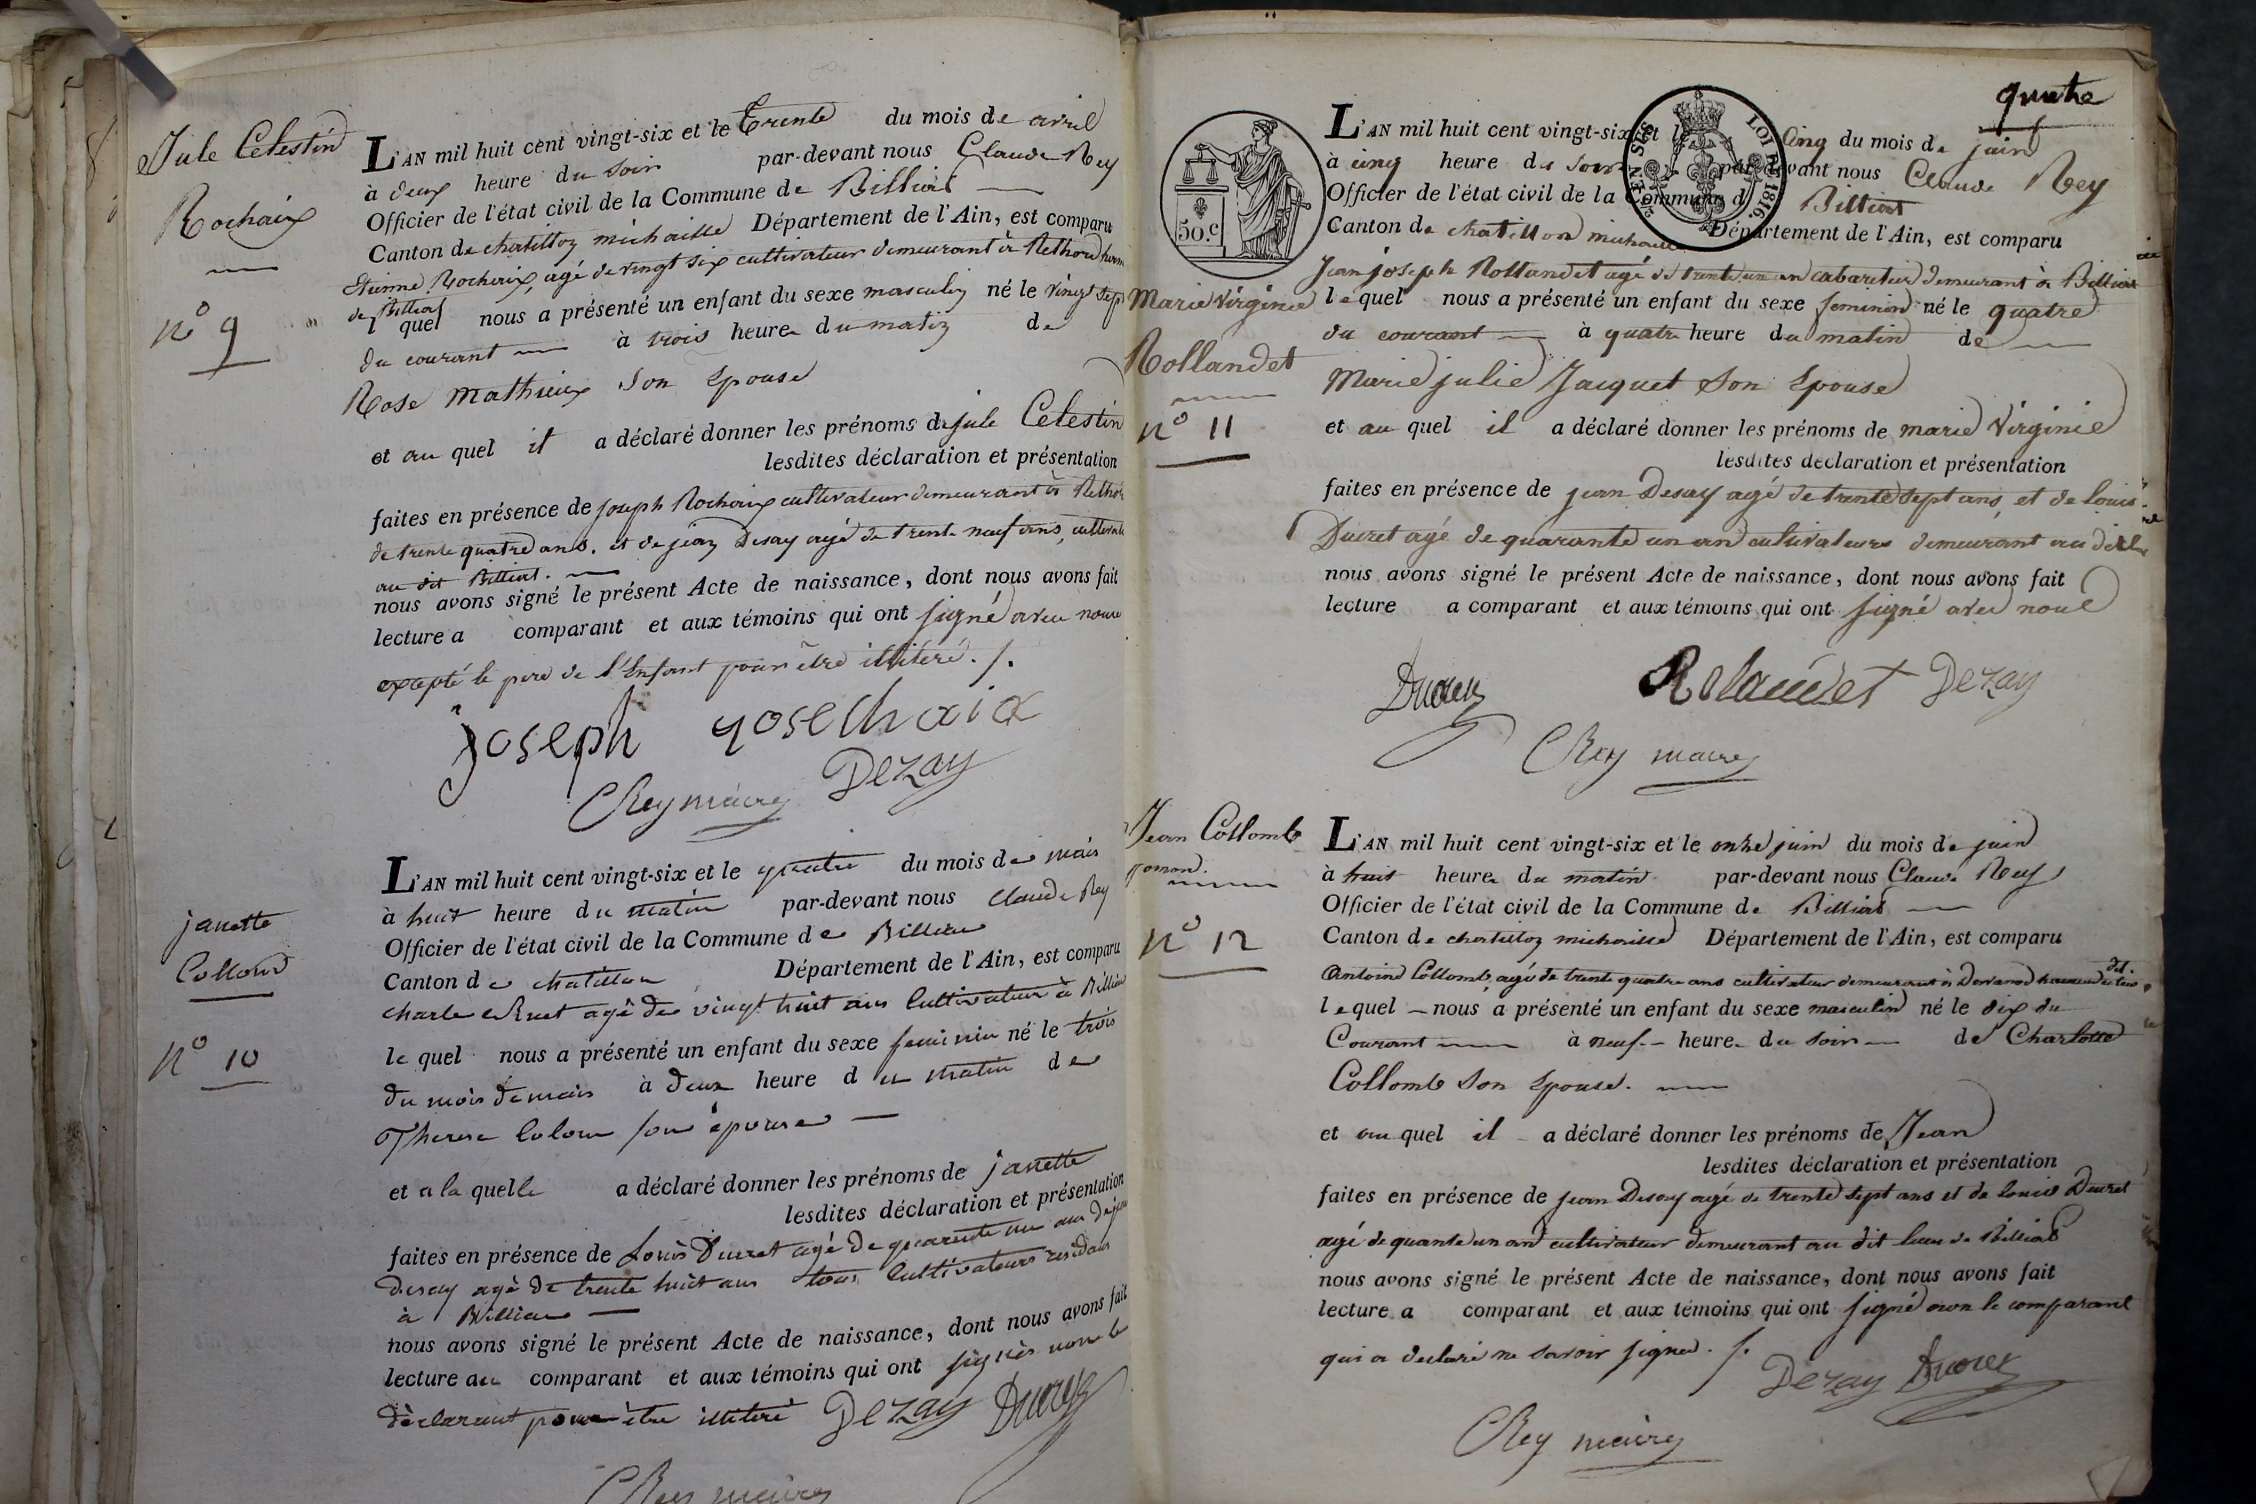 Jule Celestin
Rochaix
n° 9
L'AN mil huit cent vingt-six et le Trente du mois de avril
à deux heure du soir par-devant nous Claude Rey
Officier de l'état civil de la Commune de Billiat
Canton de chatillon michaille Département de l'Ain, est comparu
Etienne Rochaix, agé de vingt six cultivateur demeurant à Rethord
de Billiat
l quel nous a présenté un enfant du sexe masculin né le vingt sept
du courant à trois heure du matin de
Rose Mathieux son Epouse
et au quel il a déclaré donner les prénoms de jule Celestin
lesdites déclaration et présentation
faites en présence de joseph Rochaix cultivateur demeurant à Rethor
de trente quatre ans. et de jean Desay agé de trente neuf ans,
au dit Billiat.
nous avons signé le présent Acte de naissance, dont nous avons fait
lecture a comparant et aux témoins qui ont signé avec nous
excepté le pere de l'Enfant pour être illitéré. /.
joseph rosechaix
CRey maire Dezay
janette
Collomb
n° 10
L'AN mil huit cent vingt-six et le quatre du mois de mais
à huit heure du matin par-devant nous claude Rey
Officier de l'état civil de la Commune de Billiat
Canton de chatillon Département de l'Ain, est comparu
charle agé de vingt huit ans Cultivateur à Billiat
le quel nous a présenté un enfant du sexe feminin né le trois
du mois de mais à deux heure du matin de
Therese Colom son épouse
et a la quelle a déclaré donner les prénoms de janette
lesdites déclaration et présentation
faites en présence de Louis Ducret agé de quarente un ans de jean
Desay agé de trente huit ans tous Cultivateurs residans
à Billiat
nous avons signé le présent Acte de naissance, dont nous avons fait
lecture au comparant et aux témoins qui ont signés non le
déclarant pour être illitéré Dezay Ducret
CRey maire
quatre
50.c
LOI DE 1816.
L'AN mil huit cent vingt-six et le Cinq du mois de juin
à cinq heure du soir par-devant nous Claude Rey
Officier de l'état civil de la Commune d Billiat
Canton de chatillon michaille Département de l'Ain, est comparu
Jean joseph Rollandet agé de trente un an cabaretier demeurant à Billiat
Marie Virginie
Rollandet
n° 11
lequel nous a présenté un enfant du sexe feminin né le quatre
du courant à quatre heure du matin de
Marie julie Jacquet son Epouse
et au quel il a déclaré donner les prénoms de marie Virginie
lesdites déclaration et présentation
faites en présence de jean Desay agé de trente sept ans, et de louis
Ducret agé de quarante un an cultivateurs demeurant au dit
nous avons signé le présent Acte de naissance, dont nous avons fait
lecture a comparant et aux témoins qui ont signé avec nous
Ducret Rolandet Dezay
CRey maire
Jean Collomb
n° 12
L'AN mil huit cent vingt-six et le onze juin du mois de juin
à huit heure du matin par-devant nous Claude Rey
Officier de l'état civil de la Commune de Billiat
Canton de chatillon michaille Département de l'Ain, est comparu
Antoine Collomb, agé de trente quatre ans cultivateur demeurant à
lequel nous a présenté un enfant du sexe masculin né le dix du
Courant à neuf heure du soir de Charlotte
Collomb son Epouse.
et au quel il a déclaré donner les prénoms de Jean
lesdites déclaration et présentation
faites en présence de jean Desay agé de trente sept ans et de louis Ducret
agé de quante un an cultivateur demeurant au dit lieu de Billiat
nous avons signé le présent Acte de naissance, dont nous avons fait
lecture a comparant et aux témoins qui ont signé non le comparant
qui a declaré ne savoir signer. /.
Dezay Ducret
CRey maire